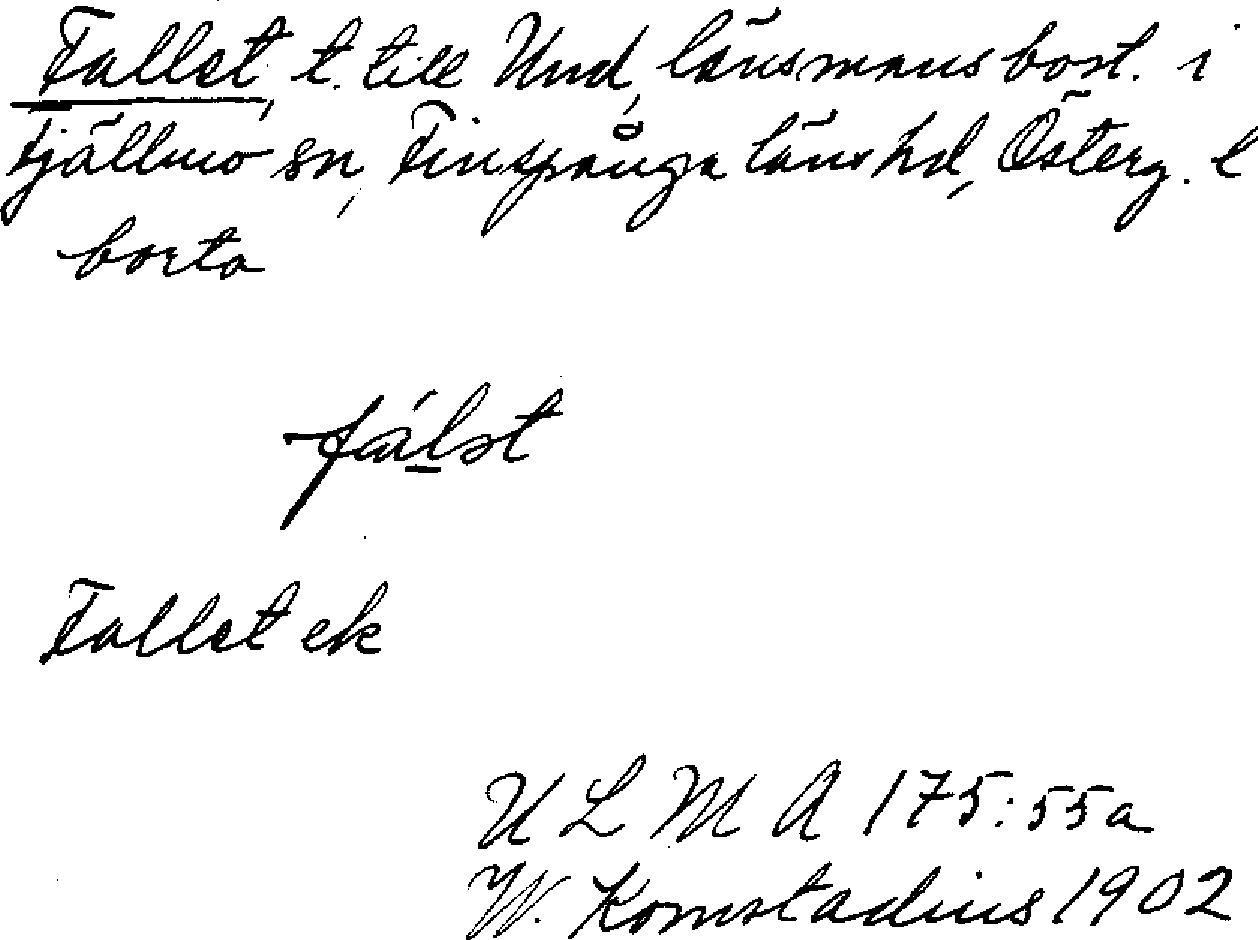 Fallet, t. till Und, länsmansbost. i
Tjällmo sn, Finspånga läns hd, Österg. l
borta
fálst
Fallet ek
ULMA 175:55a
W. Komstadius 1902